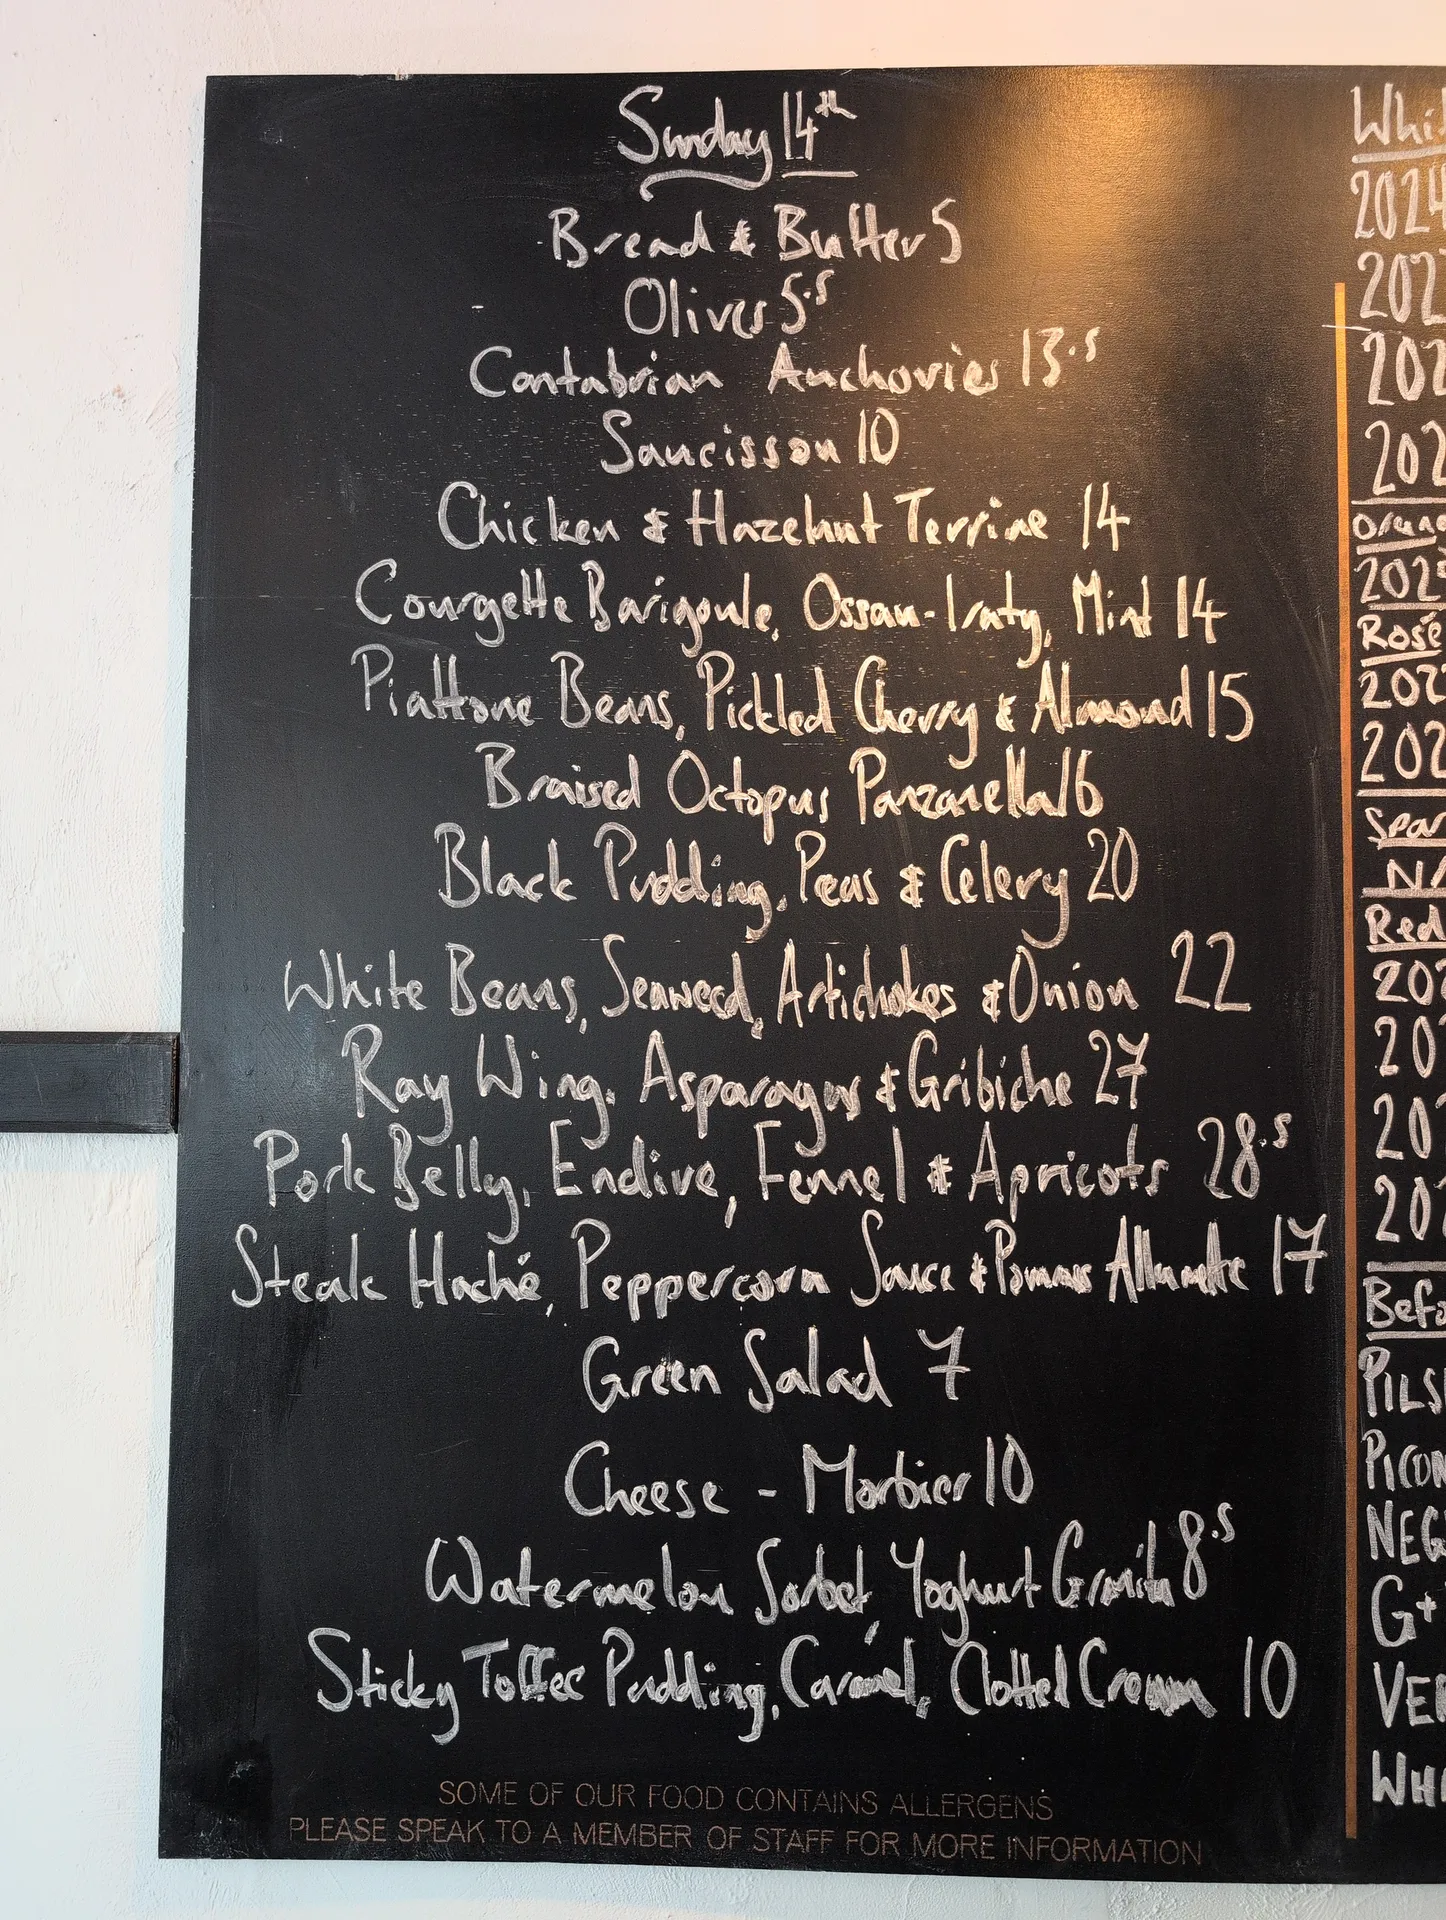 Sunday 14th
Bread & Butter 5
Olives 5.5
Cantabrian Anchovies 13.5
Saucisson 10
Chicken & Hazelnut Terrine 14
Courgette Barigoule, Ossau-Iraty, Mint 14
Piattone Beans, Pickled Cherry & Almond 15
Braised Octopus Panzanella 16
Black Pudding, Peas & Celery 20
White Beans, Seaweed, Artichokes & Onion 22
Ray Wing, Asparagus & Gribiche 27
Pork Belly, Endive, Fennel & Apricots 28.5
Steak Haché, Peppercorn Sauce & Pommes Allumette 17
Green Salad 7
Cheese - Morbier 10
Watermelon Sorbet, Yoghurt Granita 8.5
Sticky Toffee Pudding, Caramel, Clotted Cream 10
SOME OF OUR FOOD CONTAINS ALLERGENS
PLEASE SPEAK TO A MEMBER OF STAFF FOR MORE INFORMATION
Whi
2024
202
202
202
Orang
202
Rosé
202
202
Spar
N
Red
202
20
20
20
Befo
PILS
PICON
NEG
G+
VER
WH